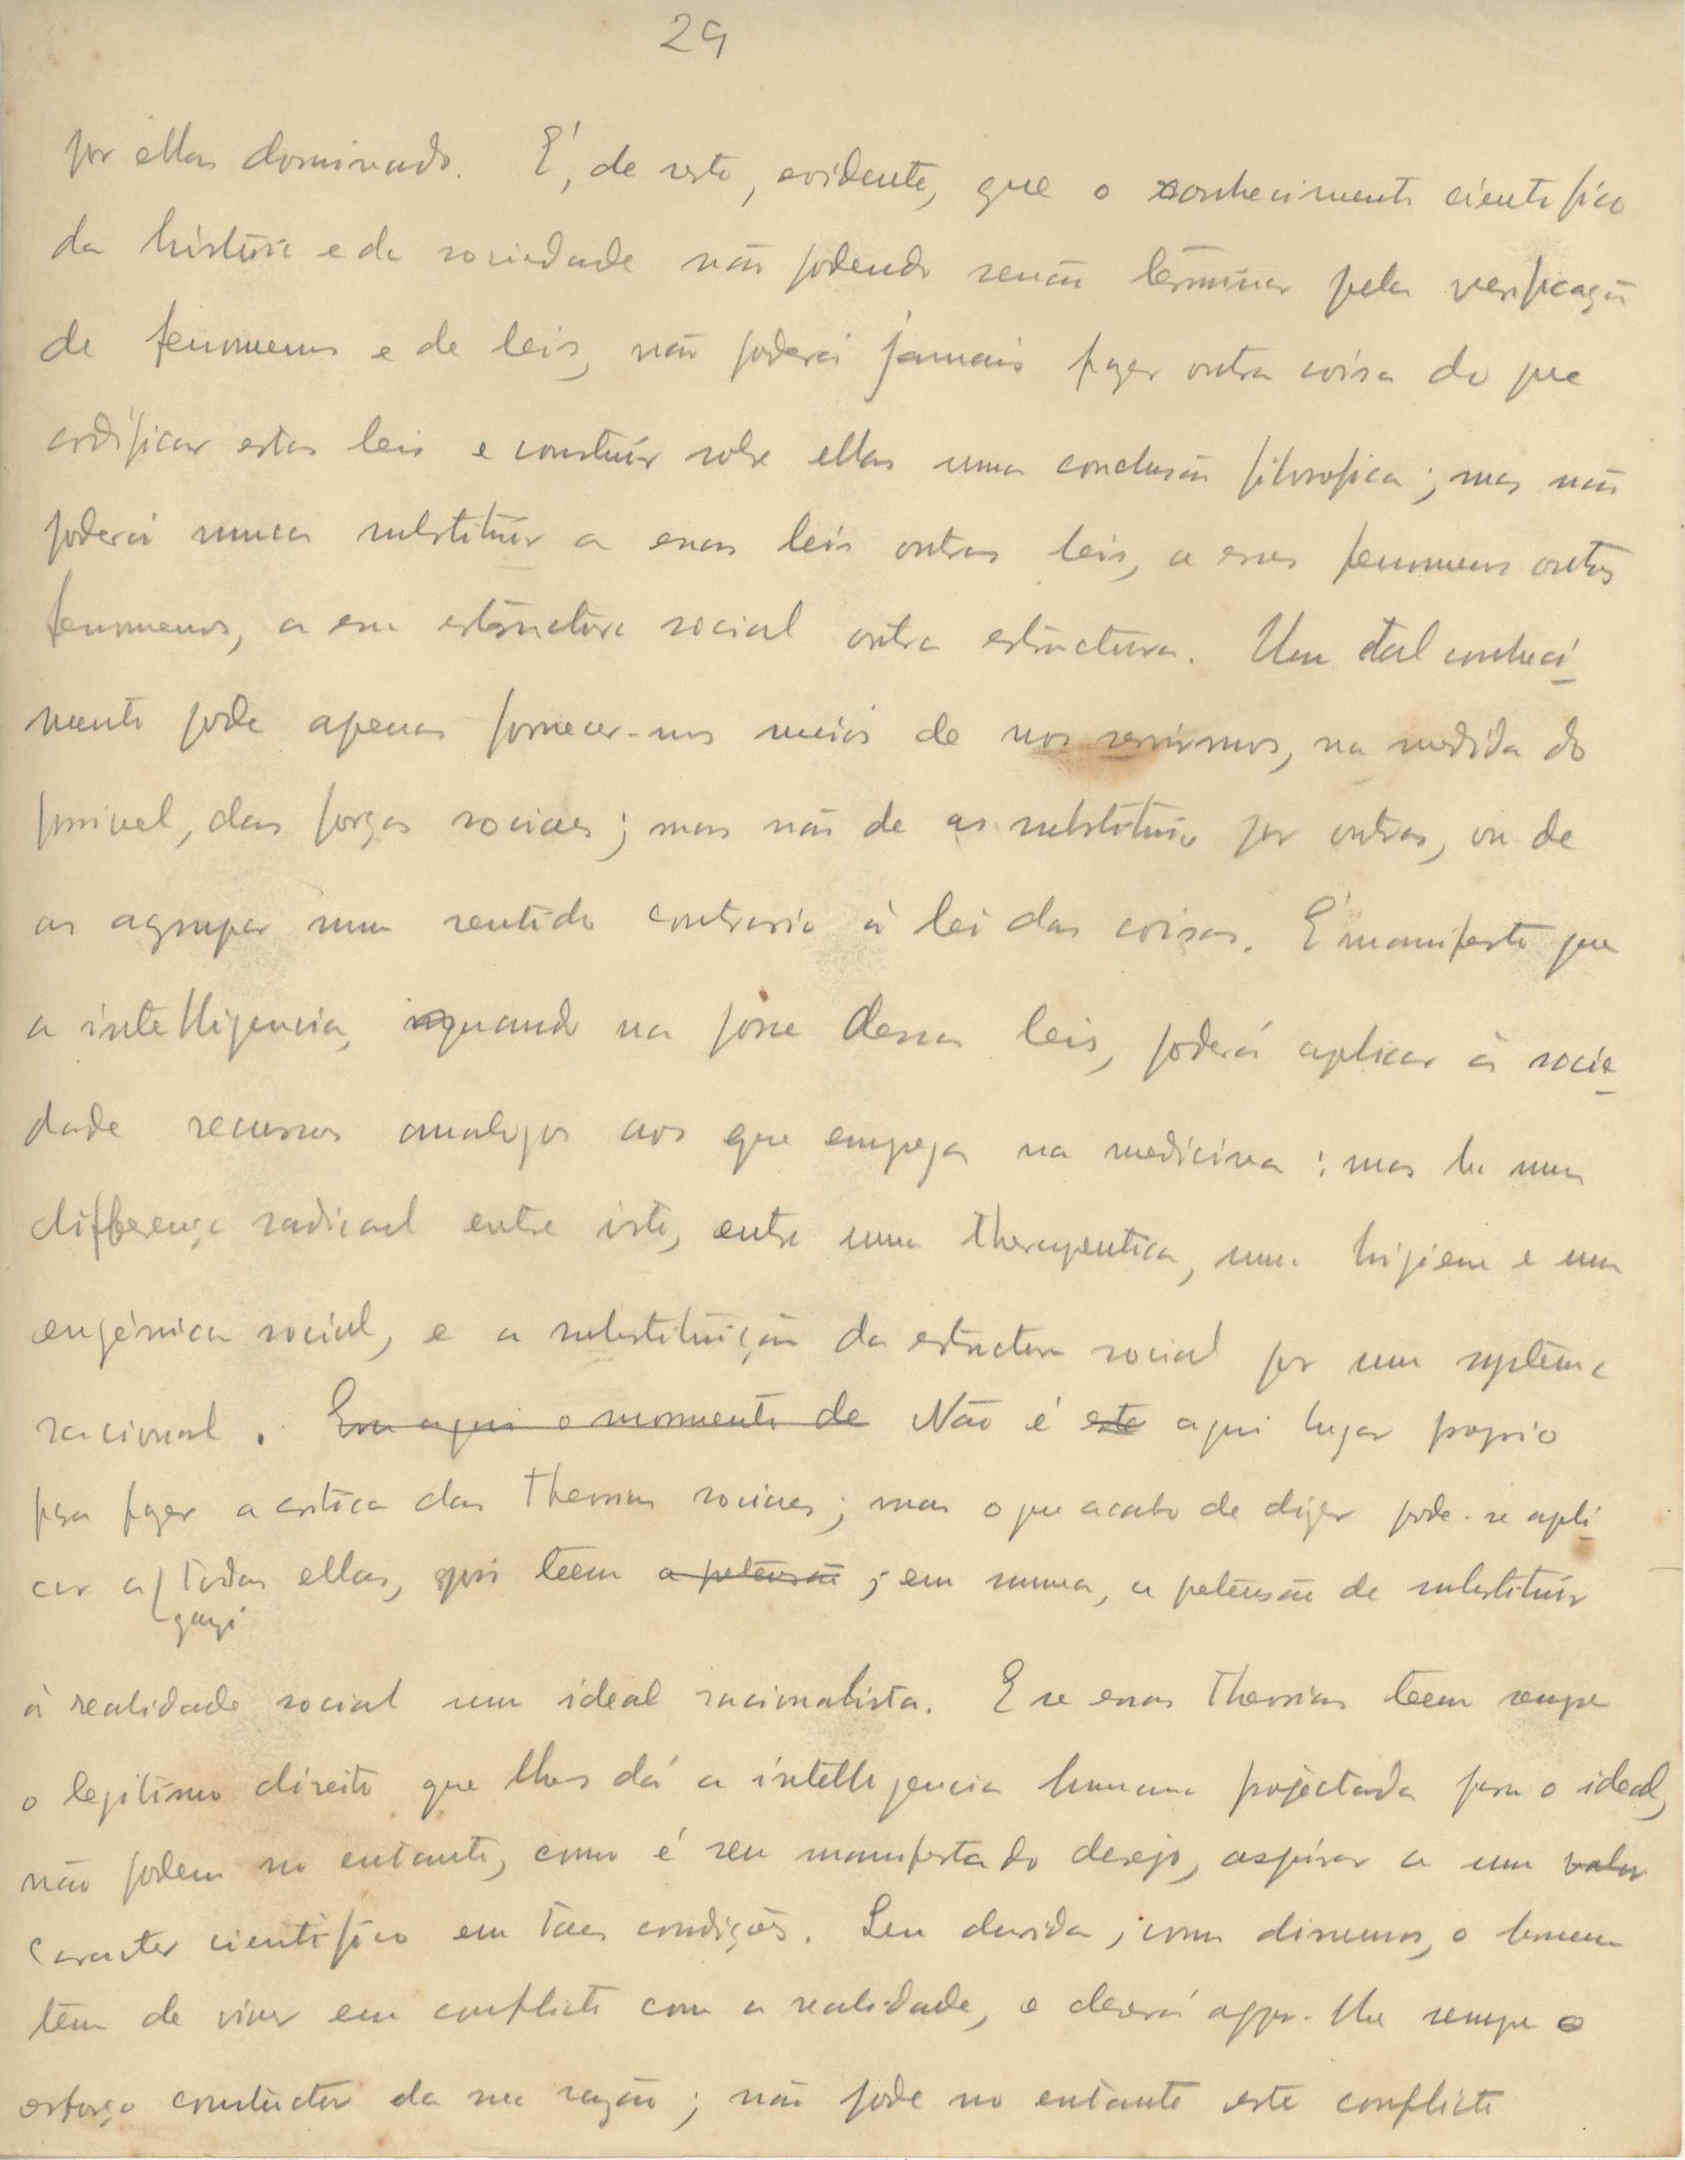 29
por ellas dominado. É, de resto, evidente, que o conhecimento cientifico
da história e da sociedade não podendo senão terminar pela verificação
de fenomenos e de leis, não poderá jamais fazer outra coisa do que
codificar estas leis e construir sobre ellas uma conclusão filosofica; mas não
poderá nunca substituir a essas leis outras leis, a esses fenomenos outros
fenomenos, a essa estructura social outra estructura. Um tal conheci-
mento pode apenas fornecer-nos meios de nos servirmos, na medida do
possivel, das forças sociaes; mas não de as substituir por outras, ou de
as agrupar num sentido contrario á lei das coisas. É manifesto que
a intelligencia, quando na posse dessas leis, poderá aplicar á socie-
dade recursos analogos aos que emprega na medicina: mas ha uma
differença radical entre isto, entre uma therapeutica, uma higiene e uma
eugénica social, e a substituição da estructura social por um systema
racional. Era aqui o momento de Não é este aqui lugar proprio
para fazer a critica das theorias sociaes; mas o que acabo de dizer pode-se apli-
car a todas ellas, que teem a pretensão; em summa, a pretensão de substituir
quasi
á realidade social um ideal racionalista. E se essas theorias teem sempre
o legitimo direito que lhes dá a intelligencia humana projectada para o ideal,
não podem no entanto, como é seu manifestado desejo, aspirar a um valor
caracter cientifico em taes condições. Sem duvida, como dissemos, o homem
tem de viver em conflicto com a realidade, e deverá oppor-lhe sempre o
esforço constructor da sua razão; não pode no entanto este conflicto